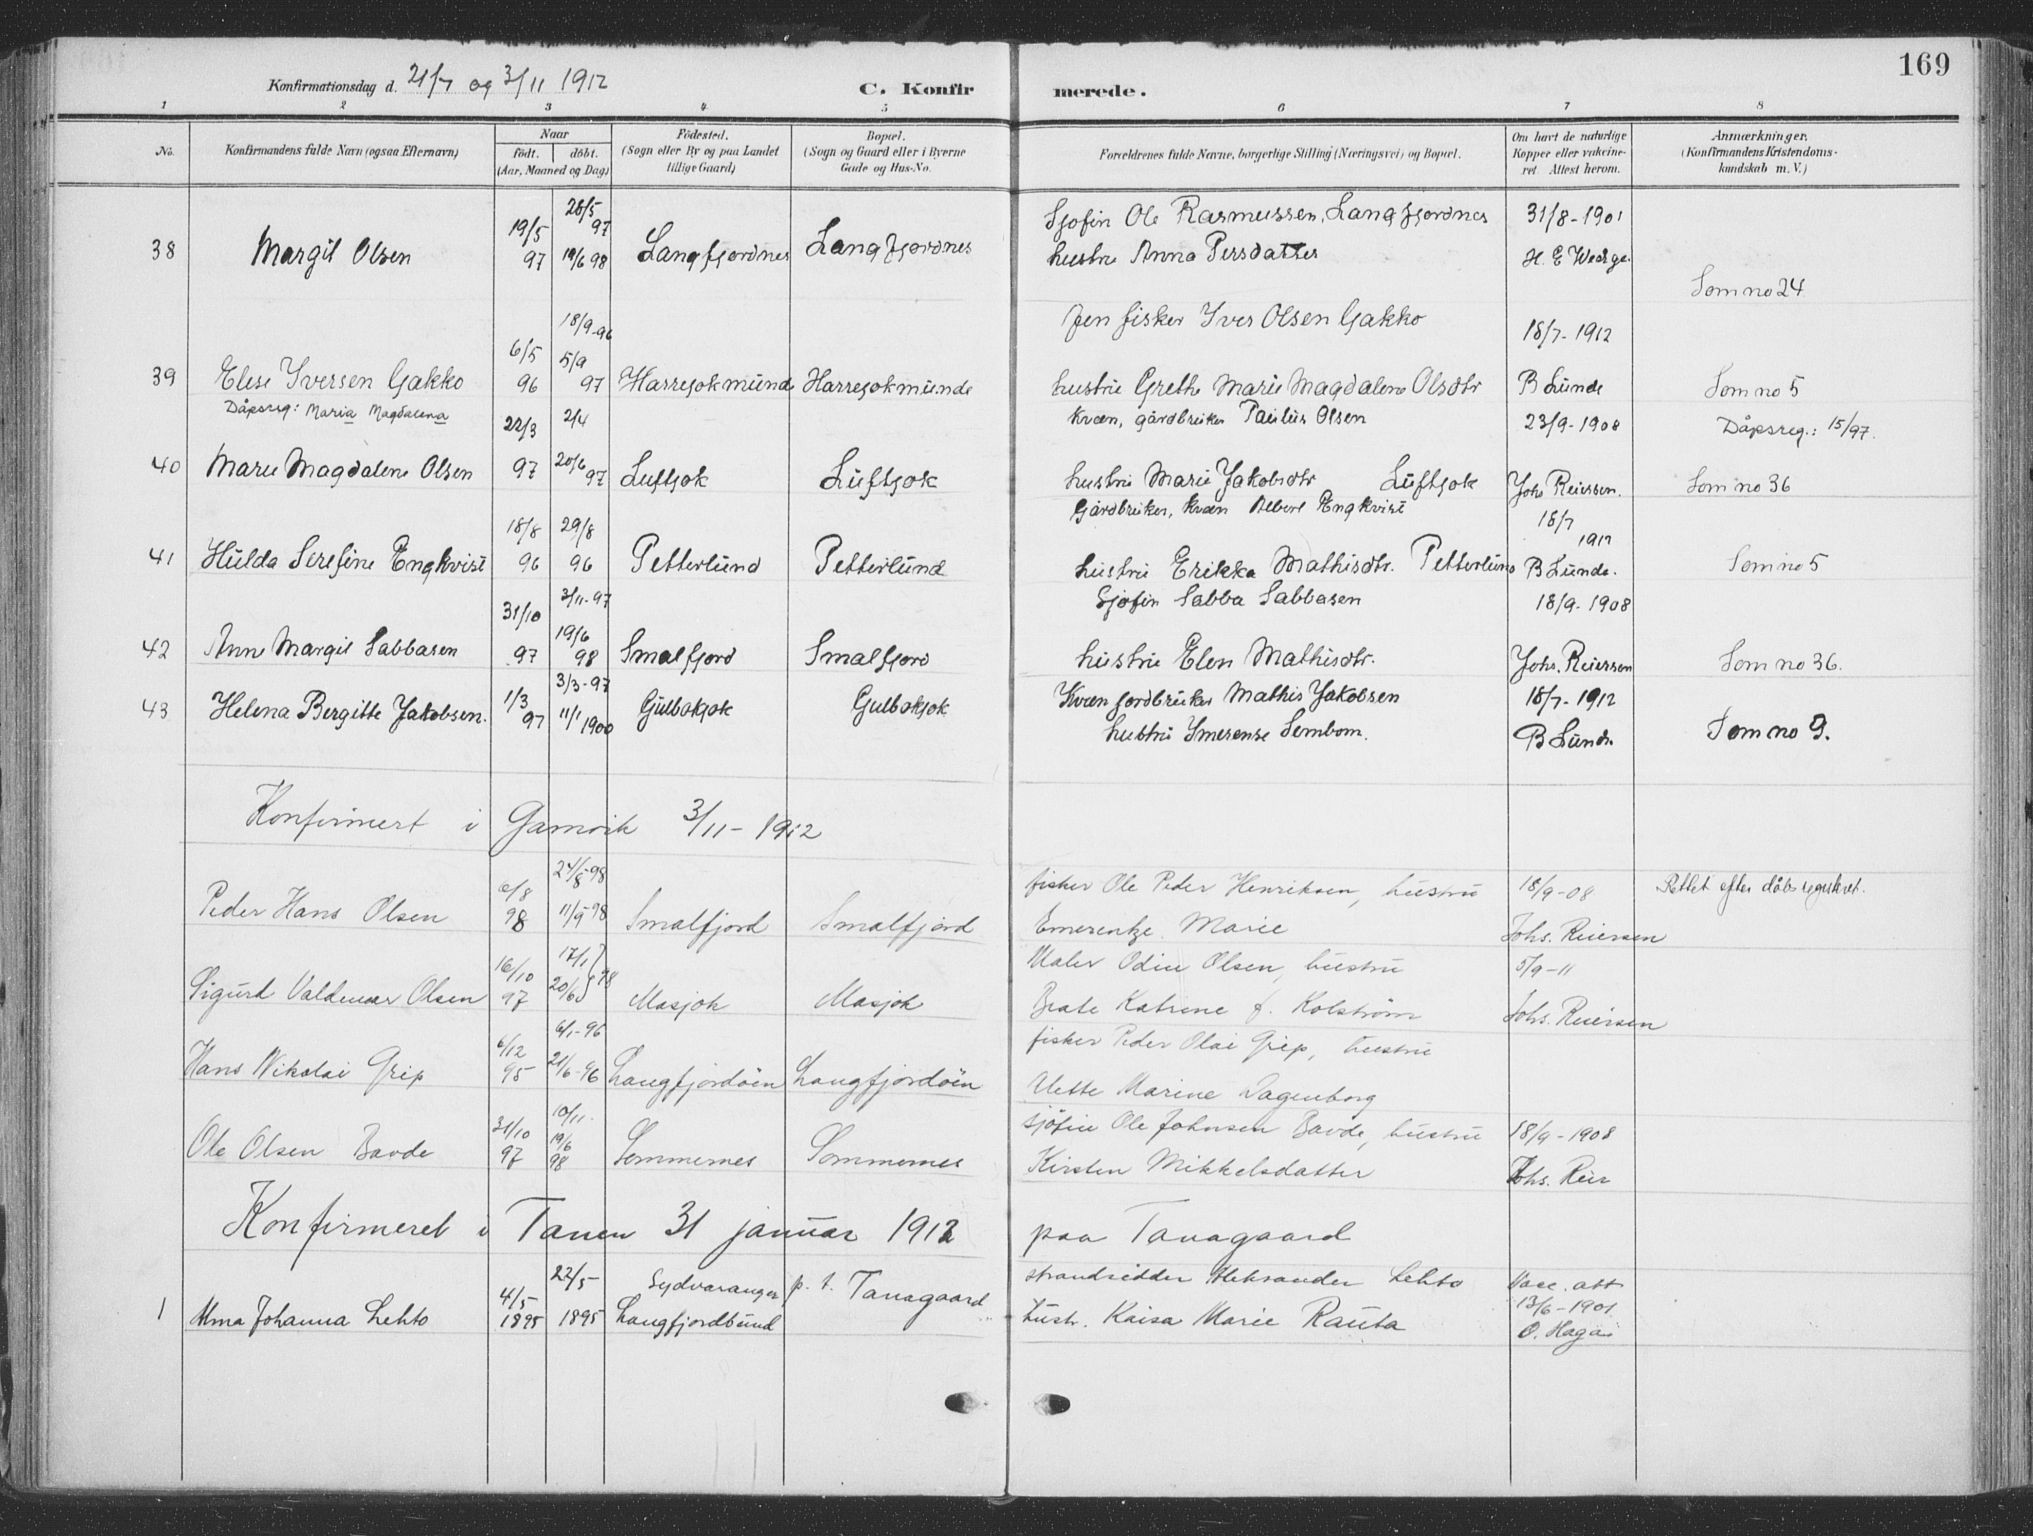 169
Konfirmationsdag d. 21/7 og 3/11 1912 C. Konfirmerede.
1 2 3 4 5 6 7 8
No. Konfirmandens fulde Navn (ogsaa Efternavn) Naar födt. döbt. (Aar, Maaned og Dag) Födested. (Sogn eller By og paa Landet tillige Gaard) Bopæl. (Sogn og Gaard eller i Byerne Gade og Hus-No. Forældrenes fulde Navne, borgerlige Stilling (Næringsvei) og Bopæl. Om havt de naturlige Kopper eller vakcineret. Attest herom. Anmærkninger. (Konfirmandens Kristendomskundskab m. V.)
26/5 97 Sjofin Ole Rasmussen, Langfjordnes 31/8-1901
38 Margit Olsen 19/5 97 19/6 98 Langfjordnes Langfjordnes hustru Anna Persdatter H. E. 
Som no 24
18/9-96 fisker Iver Olsen Gakko 18/7-1912
39 Elese Iversen Gakko 6/5 96 5/9 97 Harresjokmund Harresjokmunde hustru Grethe Marie Magdalene Olsdtr B Lunde Som no 5
Dåpsreg: Maria Magdalena 22/3 2/4 Kvæn, gårdbruker Paulus Olsen 23/9-1908 Dåpsreg.: 15/97.
40 Marie Magdalene Olsen 97 20/6 97 Luftjok Luftjok hustru Marie Jakobsdtr Luftjok Johs Reiersen. Som no 36
18/8 29/8 Gårdbruker, kvæn Albert Engkvist 18/7 1912
41 Hulda Serefine Engkvist 96 96 Petterlund Petterlund hustru Erikka Mathisdtr. Petterlund B Lunde. Som no 5
31/10 3/11-97 Sjofin Sabba Sabbasen 18/9-1908
42 Anne Margit Sabbasen 97 19/6 98 Smalfjord Smalfjord hustru Elen Mathisdtr. Johs. Reiersen Som no 36.
43 Helena Bergitte Jakobsen. 1/3 97 3/3-97 11/1 1900 Gulbokjok Gulbokjok Kvæn jordbruker Mathis Jakobsen 18/7-1912
hustru Imerense Sembom. B Lunde Som no 9.
Konfirmert i Gamvik 3/11-1912
24/8-98 fisker Ole Peder Henriksen, hustru 18/9-08 Rettet efter dåbsregistret.
Peder Hans Olsen 6/8 98 11/9-98 Smalfjord Smalfjord Emerentze Marie Johs. Reiersen
16/10 17/1 Maler Odin Olsen, hustru 5/9-11
Sigurd Valdemar Olsen 97 20/6 98 Masjok Masjok Beate Katrine f. Kolström Johs. Reiersen
6/12 6/1-96 fisker Peder Olai Grip, hustru
Hans Nikolai Grip 95 21/6-96 Langfjordöin Langfjordöin Alette Marine Dagenborg
31/10 10/11. sjöfin Ole Johnsen Bavde, hustru 18/9-1908
Ole Olsen Bavde 97 19/6 98 Sommernes Sommernes Kirsten Mikkelsdatter Johs. Reier
Konfirmeret i Tanen 31 januar 1912 paa Tanagaard
4/5 22/5 Sydvaranger p. t. Tanagaard strandsidder Aleksander Lehto Vacc. att
1 Alma Johanna Lehto 1895 1895 Langfjordbund hustr. Kaisa Marie Rauta 13/6-1901
O. Haga